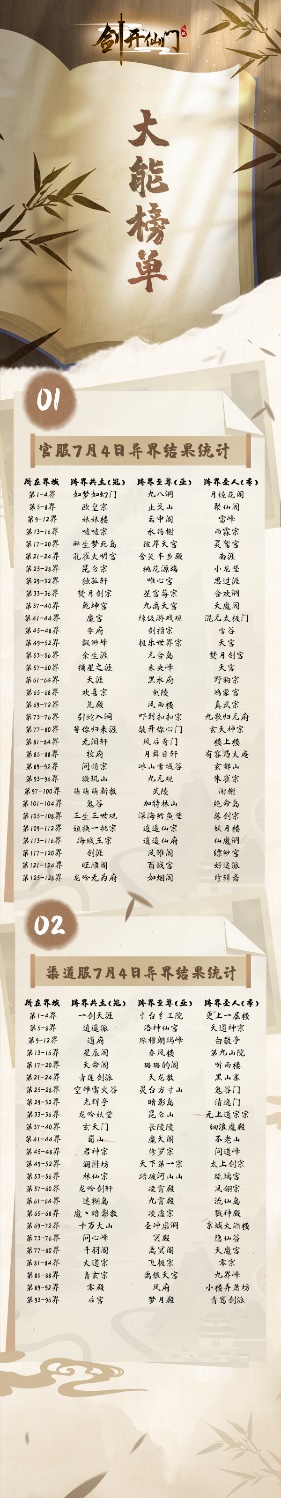 剑开仙门
大能榜单
01
官服7月4日异界结果统计
所在界域 跨界共主(冠) 跨界至尊(亚) 跨界圣人(季)
第1-4界 如梦如幻门 九八洞 月镜花阁
第5-8界 政皇宗 止戈山 聚仙阁
第9-12界 妹妹楼 云中阁 雷峰
第13-16界 嘻嘻宗 水冯榭 雨霖宗
第17-20界 醉生梦死岛 彼岸天宫 灵鹫宫
第21-24界 孔雀大明宫 合欢半步殿 南派
第25-28界 昆仑宗 桃花源端 小龙堡
第29-32界 独孤轩 唯心宫 思过派
第33-36界 梵月剑宗 星宫莓宗 合欢洞
第37-40界 乾坤宫 九离天宫 天魔阁
第41-44界 魔宫 辣级游戏观 混元太极门
第45-48界 李府 剑指宗 雪谷
第49-52界 飘渺峰 极乐世界宗 天宫
第53-56界 余生派 无合岛 梵月剑宫
第57-60界 摘星之派 未央峰 天宫
第61-64界 天涯 黑水府 野驹宗
第65-68界 欢喜宗 永陵 鸿蒙宫
第69-72界 足殿 风雨楼 真武宗
第73-76界 引蛇入洞 吓到扣扣宗 九歌归元府
第77-80界 等你归来派 敲开你心门 玄天神宗
第81-84界 无湖轩 风后奇门 楼上楼
第85-88界 牧府 月舞日轩 有容乃大庵
第89-92界 问情宗 冰山雪域谷 玄都山
第93-96界 嶷筑山 九无观 朱雀宗
第97-100界 萌萌萌新教 武陵 谢谢
第101-104界 鬼谷 加特林山 绝命岛
第105-108界 三生三世观 深海鳕鱼堡 落剑宗
第109-112界 姐换一批宗 逍遥仙宗 妖月楼
第113-116界 海贼王宗 逍遥仙府 仙魔洞
第117-120界 剑涯 风雅阁 缥缈宫
第121-124界 旺顺阁 百城宫 好运派
第125-128界 龙吟无为府 如烟阁 珍鲜斋
02
渠道服7月4日异界结果统计
所在界域 跨界共主(冠) 跨界至尊(亚) 跨界圣人(季)
第1-4界 一剑天涯 十台乡工院 更上一层楼
第5-8界 逍遥派 洛神仙宫 天道神宗
第9-12界 道府 琢穆朗玛峰 白敬亭
第13-16界 星辰阁 春风楼 第九山院
第17-20界 天命阁 璐璐的阁 听雨楼
第21-24界 青莲剑派 天龙教 黑山寨
第25-28界 空峰雪火谷 灵台方寸山 鬼谷门
第29-32界 光辉亭 暗影岛 清逸门
第33-36界 龙吟敌堂 昆仑山 无上道宗宗
第37-40界 玄天门 长陵陵 细浪魔殿
第41-44界 蜀山 魔天阁 不老山
第45-48界 君神宗 修罗宗 问道峰
第49-52界 澜浒坊 天下第一宗 太上剑宗
第53-56界 林仙宗 踏破河山山 琉璃宫
第57-60界 龙吟剑轩 凌霄殿 凤翎宗
第61-64界 迷糊岛 九霄殿 流仙岛
第65-68界 魔丶暗影教 凌虚宗 戮神殿
第69-72界 十万大山 圣冲虚洞 京城大酒楼
第73-76界 问心峰 冥殿 隐仙谷
第77-80界 千羽阁 离冥阁 天魔宫
第81-84界 大道宗 飞极宗 零宗
第85-88界 青玄宗 离恨天宫 九界峰
第89-92界 零殿 凤府 小楼弄萧坊
第93-96界 后宫 梦月殿 青鸾剑派